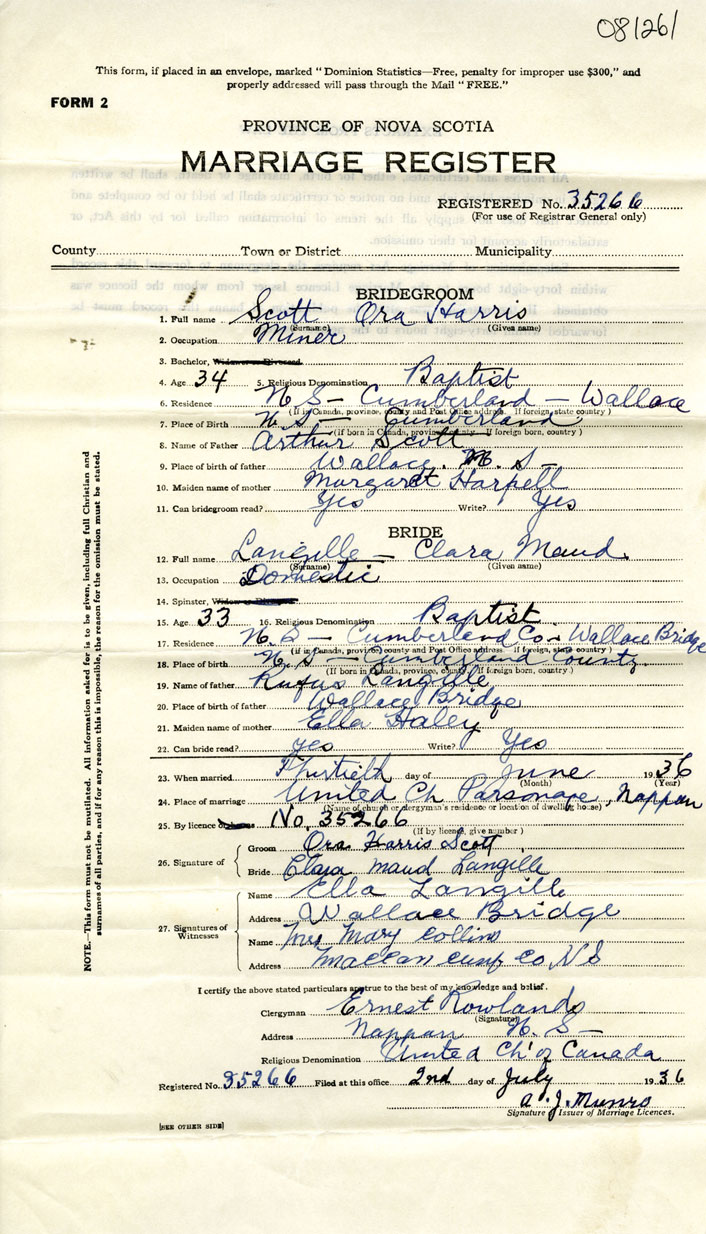 08126/
This form, if placed in an envelope, marked "Dominion Statistics—Free, penalty for improper use $300," and
properly addressed will pass through the Mail "FREE."
FORM 2
PROVINCE OF NOVA SCOTIA
MARRIAGE REGISTER
REGISTERED No. 35266
(For use of Registrar General only)
County Town or District Municipality
BRIDEGROOM
1. Full name Scott Ora Harris
(Surname) (Given name)
2. Occupation Miner
3. Bachelor, Widower or Divorced
4. Age 34 5. Religious Denomination Baptist
6. Residence N S — Cumberland — Wallace
(If in Canada, province, county and Post Office address. If foreign, state country)
7. Place of Birth N. S — Cumberland
(If born in Canada, province, county. If foreign born, country)
8. Name of Father Arthur Scott
9. Place of birth of father Wallace. N. S —
10. Maiden name of mother Margaret Harpell
11. Can bridegroom read? Yes Write? Yes
BRIDE
12. Full name Langille — Clara Maud.
(Surname) (Given name)
13. Occupation Domestic
14. Spinster, Widow or Divorced
15. Age 33 16. Religious Denomination Baptist
17. Residence N. S — Cumberland Co — Wallace Bridge
(if in Canada, province, county and Post Office address. If foreign, state country)
18. Place of birth N. S — Cumberland County.
(If born in Canada, province, county. If foreign born, country)
19. Name of father Rufus Langille
20. Place of birth of father Wallace Bridge
21. Maiden name of mother Ella Haley
22. Can bride read? yes Write? Yes
23. When married Thirtieth day of June 1936
(Month) (Year)
24. Place of marriage United Ch Parsonage, Nappan
(Name of church or clergyman's residence or location of dwelling house)
25. By licence or No. 35266
(If by licence, give number)
26. Signature of
Groom Ora Harris Scott
Bride Clara Maud Langille
27. Signatures of Witnesses
Name Ella Langille
Address Wallace Bridge
Name Mrs Mary Collins
Address Maccan Cump Co, NS
I certify the above stated particulars are true to the best of my knowledge and belief.
Clergyman Ernest Rowlands
(Signature)
Address Nappan N. S —
Religious Denomination United Ch' of Canada
Registered No. 35266 Filed at this office 2nd day of July 1936
A. J. Munro
Signature Issuer of Marriage Licences.
[SEE OTHER SIDE]
NOTE.—This form must not be mutilated. All information asked for is to be given, including full Christian and
surnames of all parties, and if for any reason this is impossible, the reason for the omission must be stated.